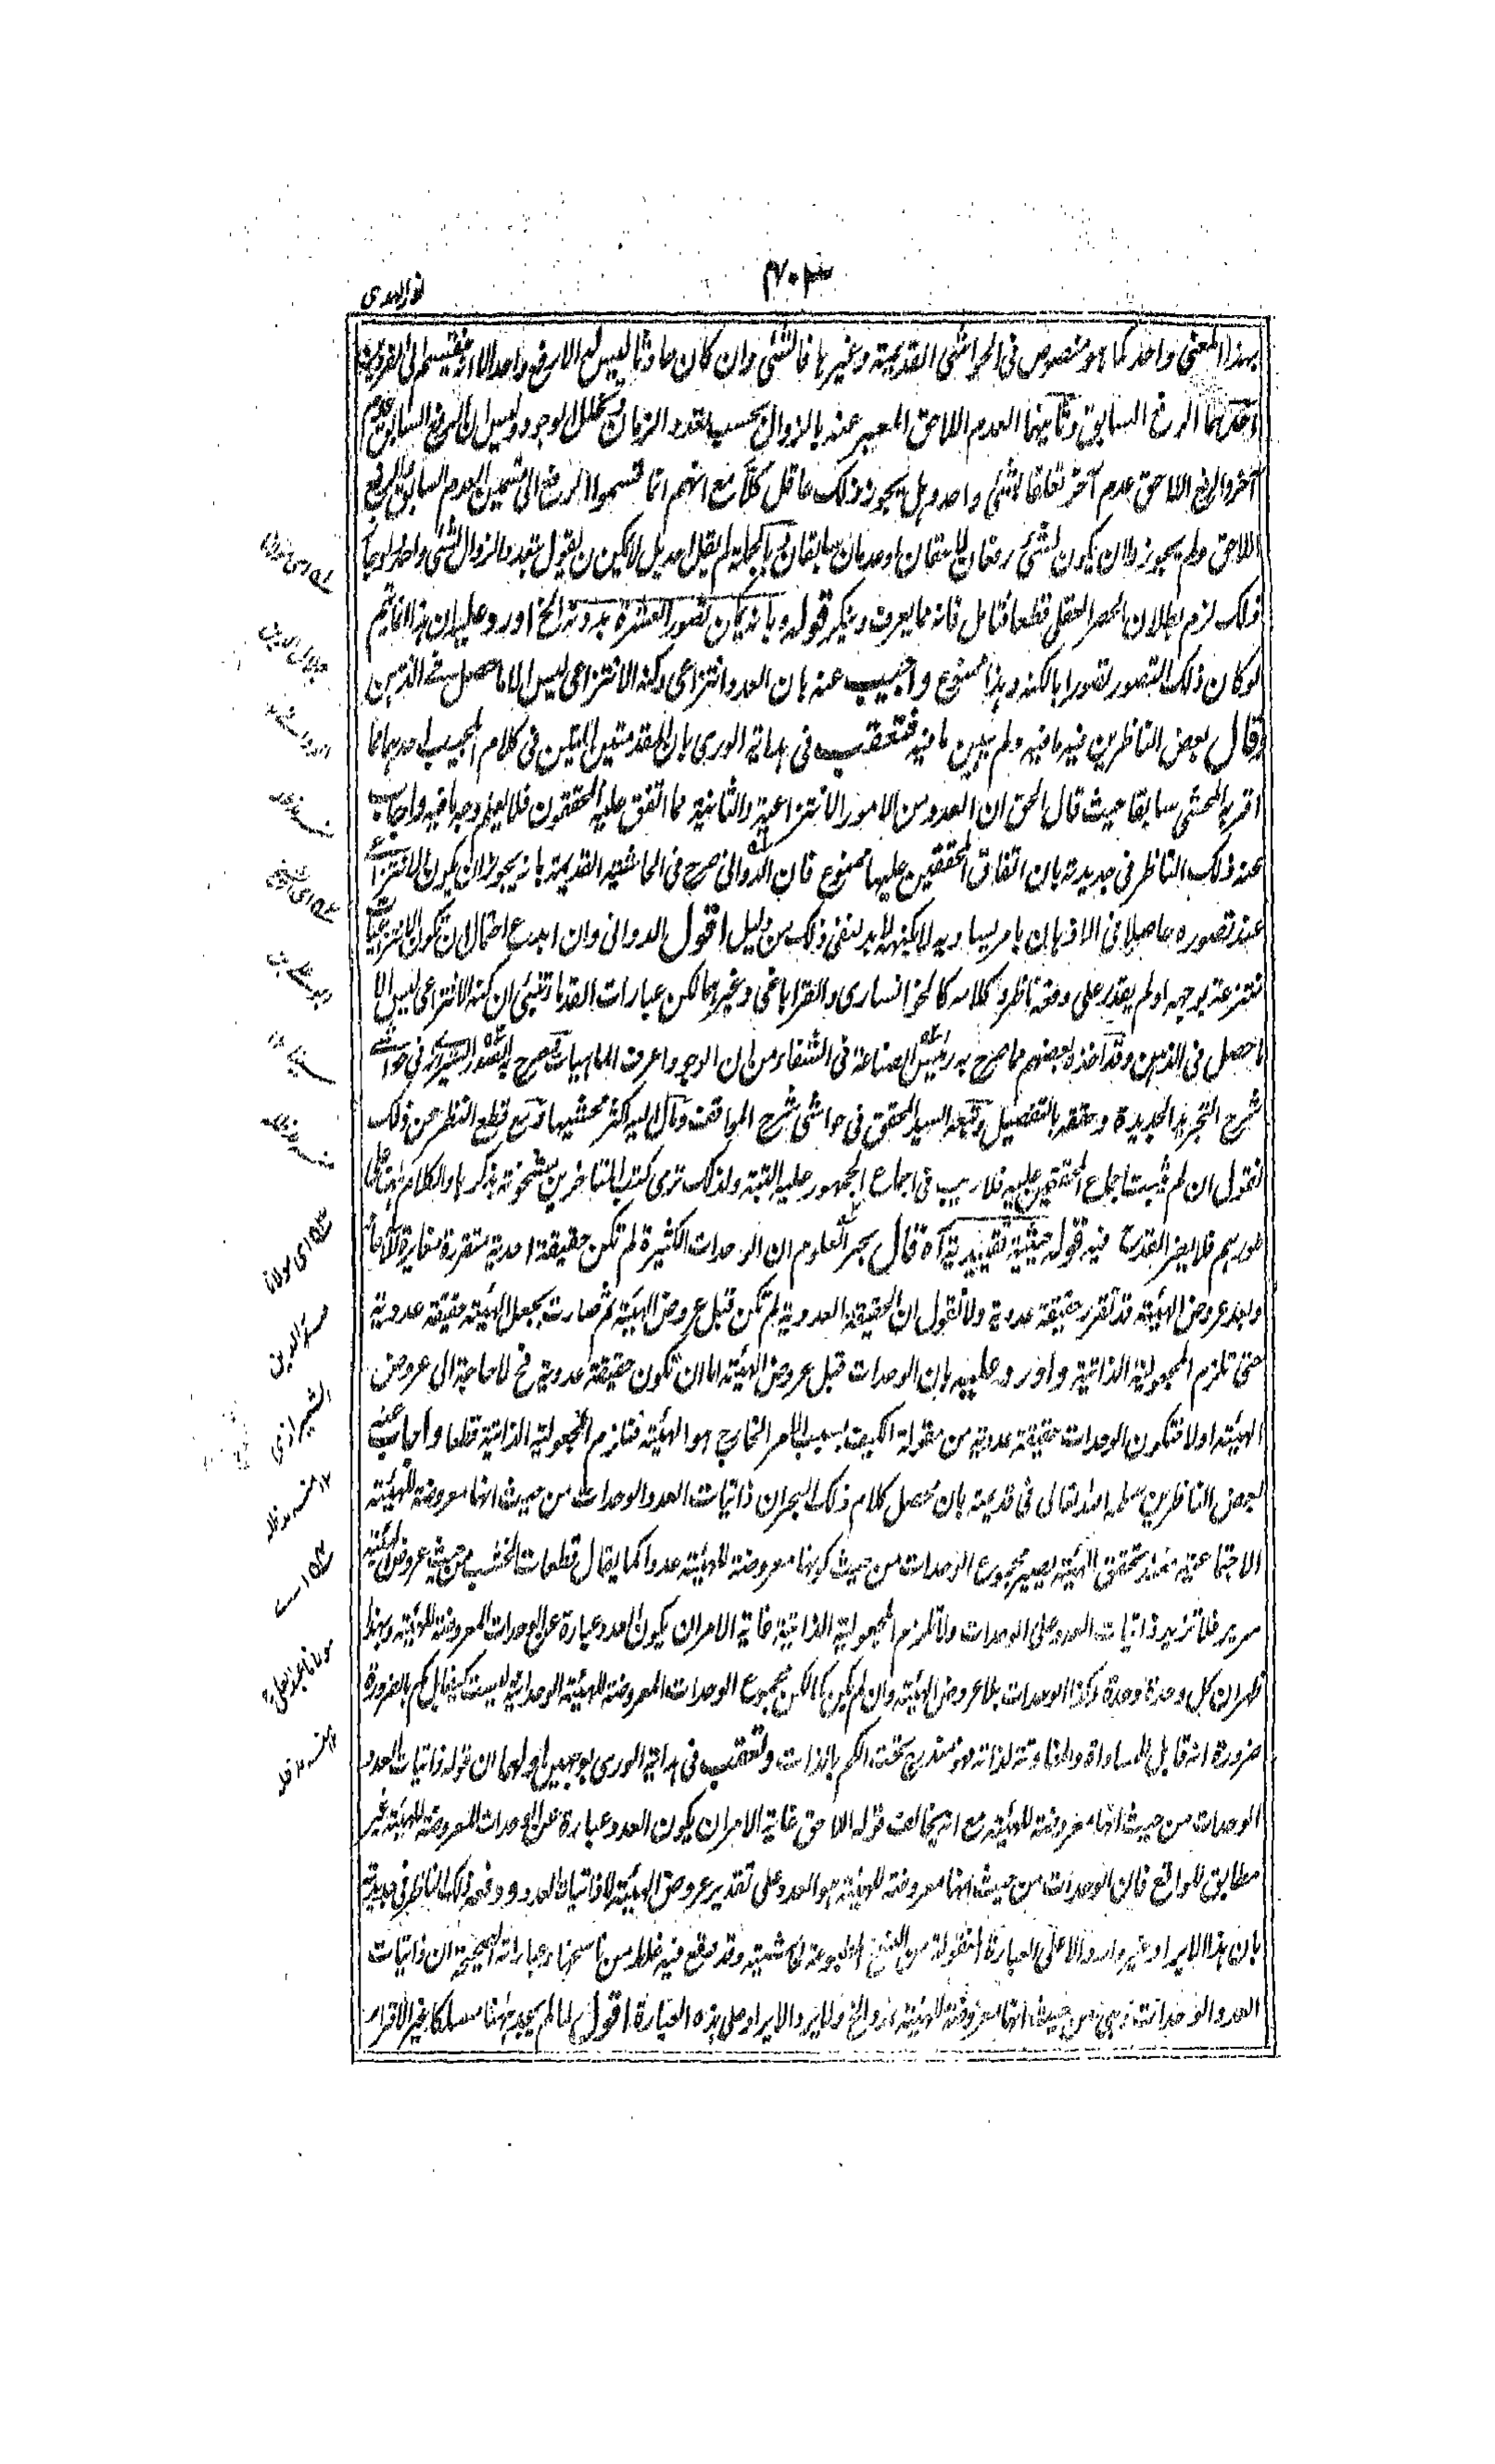 نور الهدى
بهذا المعنى واحد كما هو منصوص فى الحواشى القديمة وغيرها فالشئ وان كان حادثا ليس له الا رفع واحد الا انه
احدهما الرفع السابق وثانيهما العدم اللاحق المعبر عنه بالزوال بحسب تعدد الزمان وتخلل الوجود وليس ان الرفع السابق عدم
آخر والرفع اللاحق عدم آخر تعلقا بشئ واحد وهل يجوز ذلك عاقل كلا مع انهم انما قسموا الرفع الى قسمين العدم السابق والرفع
اللاحق ولم يجوزوا ان يكون لشئ رفعان لاحقان او عدمان سابقان وبالجملة لم يقل احد بل لا يمكن ان يقول بتعدد الزوال لشئ واحد ولو جاز
ذلك لزم بطلان الحصر العقلى قطعا فتامل فانه مما يعرف وينكر قوله وبانه يمكن تصور العشرة بدونه الخ اورد عليه ان هذا انما يتم
لو كان ذلك التصور تصورا بالكنه وهذا ممنوع واجيب عنه بان العدد انتزاعى وكنه الانتزاعى ليس الا ما حصل فى الذهن
وقال بعض الناظرين فيه ما فيه ولم يبين ما فيه فتعقب فى هداية الورى بان المقدمتين اللتين فى كلام المجيب احدهما مما
اقر به المحشى سابقا حيث قال الحق ان العدد من الامور الانتزاعية والثانية مما اتفق عليه المحققون فلا يعلم وجه ما فيه واجاب
عنه ذلك الناظر فى جديدته بان اتفاق المحققين عليها ممنوع فان الدوانى صرح فى الحاشية القديمة بانه يجوز ان يكون الانتزاعى
عند تصوره حاصلا فى الاذهان بامر يساويه لا بكنهه لا بد لنفى ذلك من دليل اقول الدوانى وان ابدع احتمال ان تكون الانتزاعيات
منتزعة بوجهه ولم يقدر على دفعه ناظرو كلامه كالخوانسارى والقراباغى وغيرهما لكن عبارات القدماء تنبئ ان كنه الانتزاعى ليس الا
ما حصل فى الذهن وقد اخذ بعضهم مما صرح به رئيس الصناعة فى الشفاء من ان الوجود اعرف الماهيات وصرح به الصدر الشيرازى فى حواشى
شرح التجريد الجديدة وحققه بالتفصيل وتبعه السيد المحقق فى حواشى شرح المواقف ومال اليه اكثر محشيها ومع قطع النظر عن ذلك
نقول ان لم يثبت اجماع المحققين عليه فلا ريب فى اجماع الجمهور عليه البتة ولذلك ترى كتب المتاخرين مشحونة بذكرها والكلام ههنا على
طورهم فلا يضر القدح فيه قوله حيثية تقييدية آه قال بحر العلوم ان الوحدات الكثيرة لم تكن حقيقة احدية متقررة مغايرة للآحاد
وبعد عروض الهيئة قد تقرر حقيقة عددية ولا نقول ان الحقيقة العددية لم تكن قبل عروض الهيئة ثم صارت بجعل الهيئة حقيقة عددية
حتى تلزم المجعولية الذاتية واورد عليه بان الوحدات قبل عروض الهيئة اما ان تكون حقيقة عددية فح لا حاجة الى عروض
الهيئة اولا فتكون الوحدات حقيقة عددية من مقولة الكيف بسبب الامر الخارج هو الهيئة فتلزم المجعولية الذاتية قطعا واجاب عنه
بعض الناظرين سلمه الله تعالى فى قديمته بان محصل كلام ذلك البحر ان ذاتيات العدد الوحدات من حيث انها معروضة للهيئة
الاجتماعية فعند تحقق الهيئة يصير مجموع الوحدات من حيث كونها معروضة للهيئة عددا كما يقال قطعات الخشب من حيث عروض الهيئة
سرير فلا تزيد ذاتيات العدد على الوحدات ولا تلزم المجعولية الذاتية غاية الامر ان يكون العدد عبارة عن الوحدات المعروضة للهيئة وبهذا
ظهر ان كل وحدة وحدة وكذا الوحدات بلا عروض الهيئة وان لم يكن كما لكن مجموع الوحدات المعروضة للهيئة الوحدانية ليست كيفا بل كم بالضرورة
ضرورة انه قابل للمساواة والمفاوتة لذاته فهو مندرج تحت الكم بالذات وتعقب فى هداية الورى بوجهين اولهما ان قوله ذاتيات العدد
الوحدات من حيث انها معروضة للهيئة مع انه يخالف قوله اللاحق غاية الامر ان يكون العدد عبارة عن الوحدات المعروضة للهيئة غير
مطابق للواقع فان الوحدات من حيث انها معروضة للهيئة هو العدد على تقدير عروض الهيئة لا ذاتيات العدد ودفعه ذلك الناظر فى جديدته
بان هذا الايراد غير وارد الا على العبارة المنقولة من النسخ المطبوعة لحاشيته وقد وقع فيه غلط من ناسخها وعبارته الصحيحة ان ذاتيات
العدد الوحدات وهى من حيث انها معروضة للهيئة عدد الخ ولا يرد الايراد على هذه العبارة اقول لما لم يجد ههنا مسلكا غير الاقرار
جلال الدين
الدوانى
اى مولانا
صدر الدين
الشيرازى
منه مد ظله
مولانا عبد العلى
منه مد ظله